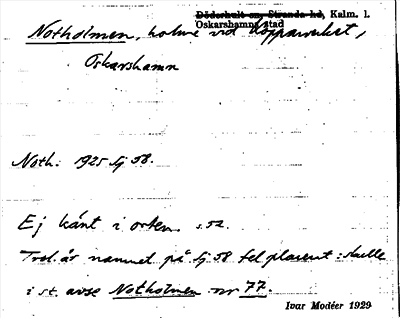 Döderhult sn, Stranda hd, Kalm. l.
Oskarshamns stad
Notholmen, holme vid Kopparverket,
Oskarshamn
Noth: 1925 lj 58.
Ej känt i orten s. 52.
Trol. är namnet på lj 58 fel placerat: skulle
i st. avse Notholmen nr 77.
Ivar Modéer 1929